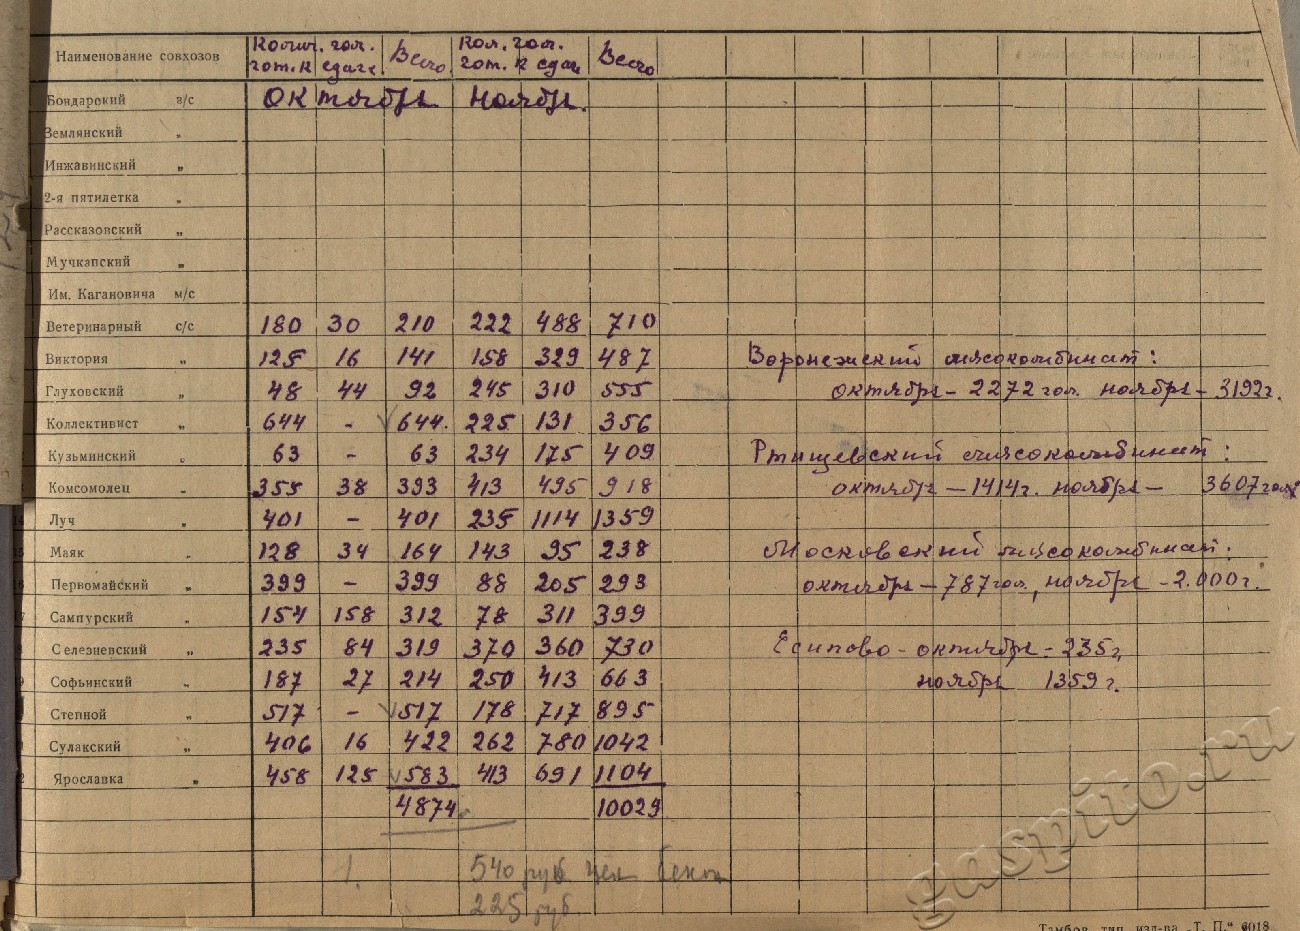 Наименование совхозов Колич. гол. гот. к сдаче Всего Кол. гол. гот. к сдач Всего
Бондарский з/с Октябрь Ноябрь.
Землянский "
Инжавинский "
2-я пятилетка "
Рассказовский "
Мучкапский "
Им. Кагановича м/с
Ветеринарный с/с 180 30 210 222 488 710
Виктория " 125 16 141 158 329 487 Воронежский мясокомбинат:
Глуховский " 48 44 92 245 310 555 октябрь - 2272 гол. ноябрь - 3192 г.
Коллективист " 644 - 644. 225 131 356
Кузьминский " 63 - 63 234 175 409 Ртищевский мясокомбинат:
Комсомолец " 355 38 393 413 495 918 октябрь - 1414 г. ноябрь - 3607 гол
Луч " 401 - 401 235 1114 1359
Маяк " 128 34 164 143 95 238 Московский мясокомбинат:
Первомайский " 399 - 399 88 205 293 октябрь - 787 гол, ноябрь - 2.000 г.
Сампурский " 154 158 312 78 311 399
Селезневский " 235 84 319 370 360 730 Есипово - октябрь - 235 г,
Софьинский " 187 27 214 250 413 663 ноябрь 1359 г.
Степной " 517 - 517 178 717 895
Сулакский " 406 16 422 262 780 1042
Ярославка " 458 125 583 413 691 1104
4874 10029
1. 540 руб
225 руб.
gaspito.ru
Тамбов, тип. изд-ва „Т. П.“ 6018